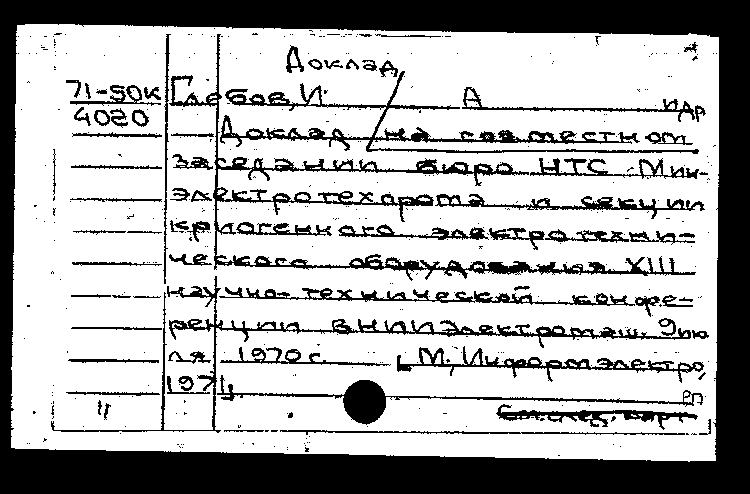 Доклад
71-50К Глебов, И. А и др
4020
Доклад на совместном
заседании бюро НТС Мин-
электротехпрома и секции
криогенного электротехни-
ческого оборудования XIII
научно-технической конфе-
ренции ВНИИЭлектромаш. 9 ию
ля 1970 г. [М., Информэлектро,
1971].
рп
См. след. карт